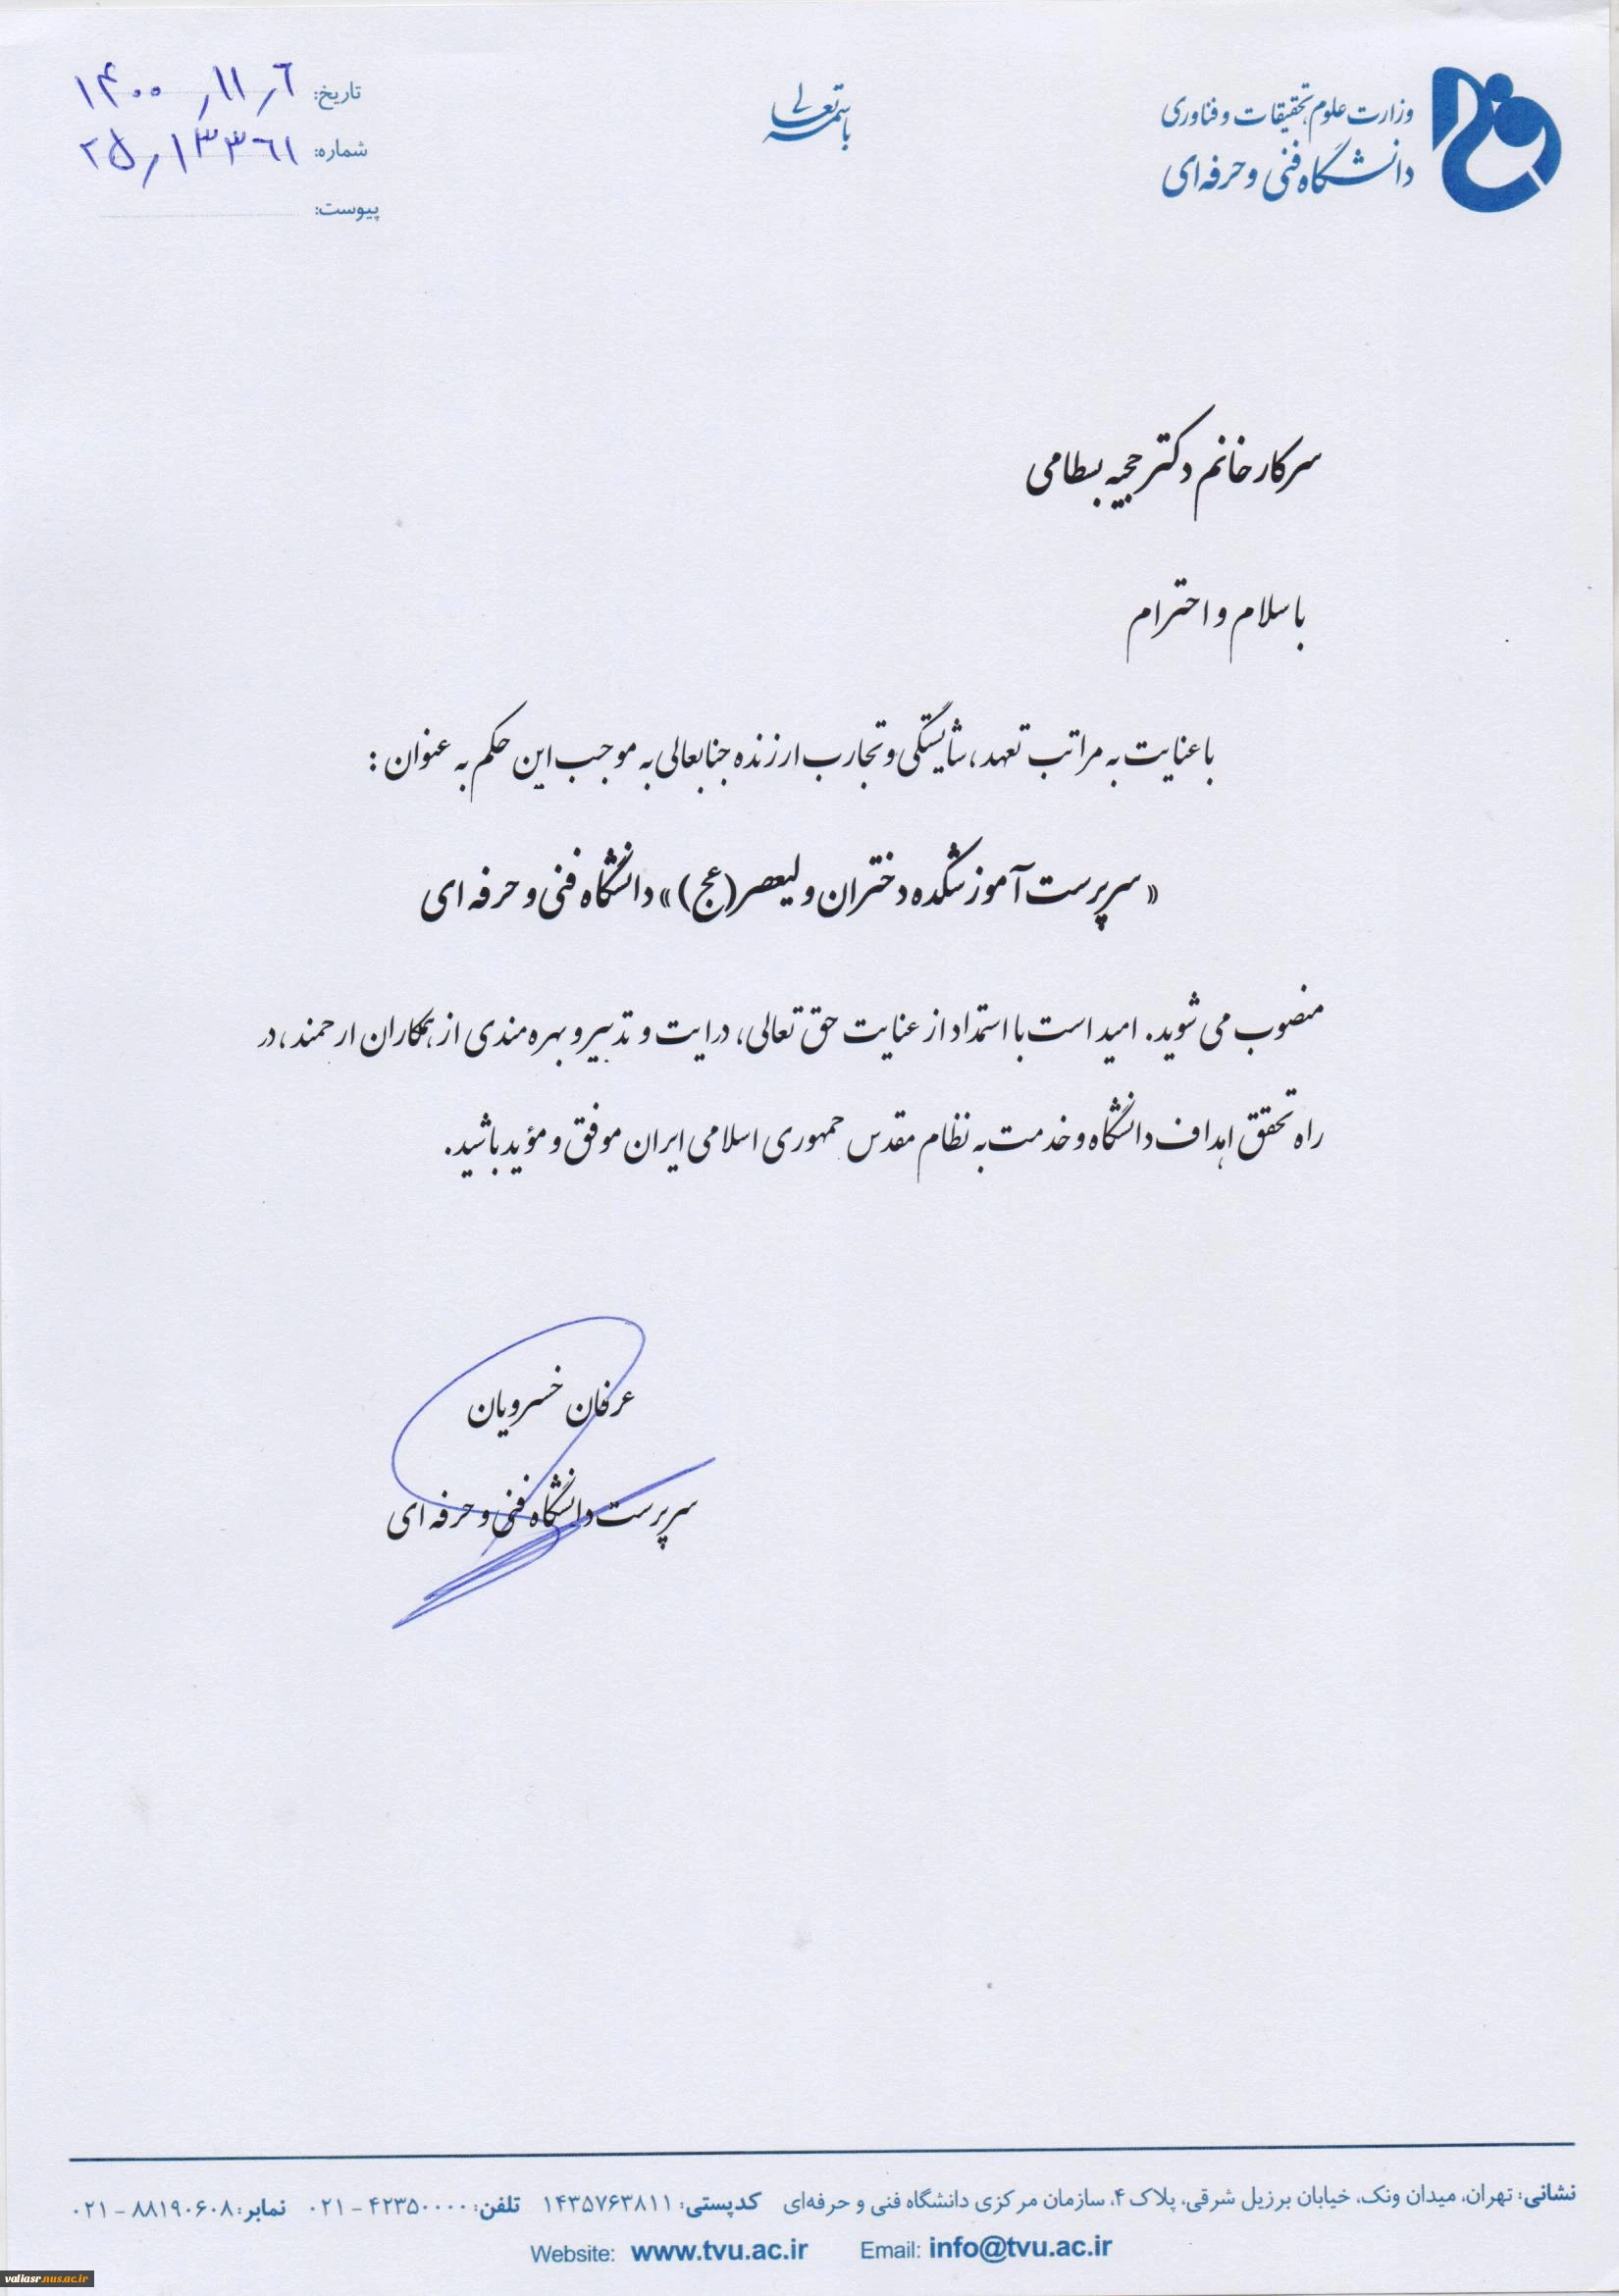 وزارت علوم، تحقیقات و فناوری
دانشگاه فنی و حرفه‌ای
باسمه تعالی
تاریخ: ۱۴۰۰٫۱۱٫۶
شماره: ۲۵٫۱۳۳۶۱
پیوست:
سرکار خانم دکتر حجیه بسطامی
با سلام و احترام
با عنایت به مراتب تعهد، شایستگی و تجارب ارزنده جنابعالی به موجب این حکم به عنوان :
« سرپرست آموزشکده دختران ولیعصر(عج)» دانشگاه فنی و حرفه ای
منصوب می شوید. امید است با استمداد از عنایت حق تعالی، درایت و تدبیر و بهره مندی از همکاران ارحمند، در
راه تحقق اهداف دانشگاه و خدمت به نظام مقدس جمهوری اسلامی ایران موفق و مؤید باشید.
عرفان خسرویان
سرپرست دانشگاه فنی و حرفه ای
نشانی: تهران، میدان ونک، خیابان برزیل شرقی، پلاک ۴، سازمان مرکزی دانشگاه فنی و حرفه‌ای کدپستی: ۱۴۳۵۷۶۳۸۱۱ تلفن: ۴۲۳۵۰۰۰۰ - ۰۲۱ نمابر: ۸۸۱۹۰۶۰۸ - ۰۲۱
Website: www.tvu.ac.ir Email: info@tvu.ac.ir
valiasr.nus.ac.ir